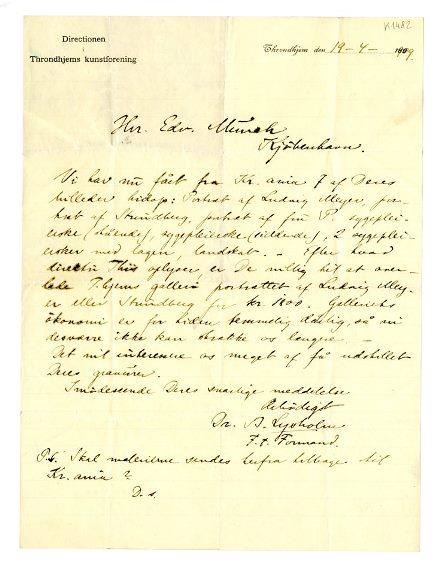 K1482
Directionen
i
Throndhjems kunstforening
Throndhjem den 19-4- 1909.
Hr. Edv. Munch
Kjöbenhavn.
Vi har nu fået fra Kr.ania 7 af Deres
billeder hidop: Portræt af Ludvig Meyer, por-
træt af Strindberg, portræt af fru P. sygeplei-
erske (stående), sygepleierske (siddende), 2 sygeplei-
ersker med lagen, landskab. – Efter hvad
direktör Thiis oplyser, er De villig til at over-
lade T.hjems galleri portrættet af Ludvig Mey-
er eller Strindberg for kr. 1800. Galleriets
ökonomi er for tiden temmelig dårlig, så vi
desværre ikke kan strække os længere. –
Det vil interessere os meget at få udstillet
Deres gravurer.
Imödeseende Deres snarlige meddelelse
Ærbödigst
Dr. A. Lysholm
F. t. Formand.
P.S. Skal malerierne sendes herfra tilbage til
Kr.ania?
D. s.